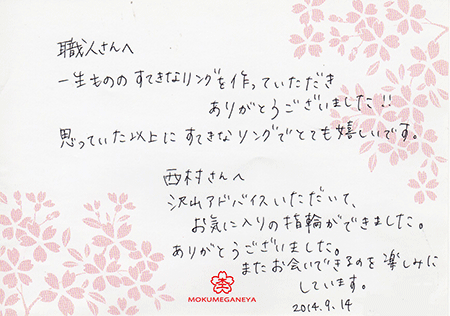 職人さんへ
一生もののすてきなリングを作っていただき
ありがとうございました!!
思っていた以上にすてきなリングでとても嬉しいです。
西村さんへ
沢山アドバイスいただいて、
お気に入りの指輪ができました。
ありがとうございました。
またお会いできるのを楽しみに
しています。
MOKUMEGANEYA
2014.9.14